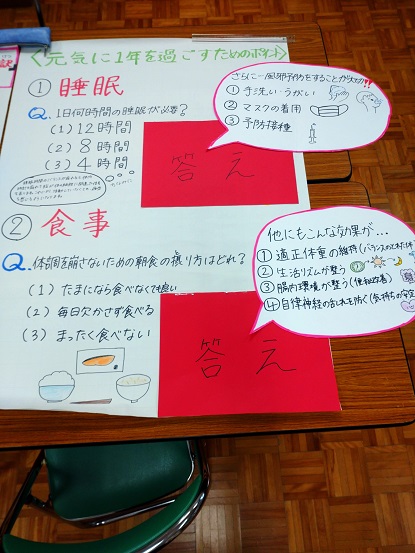 <元気に1年を過ごすためのポイント>
① 睡眠
Q. 1日何時間の睡眠が必要?
(1) 12時間
(2) 8時間
(3) 4時間
答え
さらに…風邪予防をすることが大切!!
① 手洗い・うがい
② マスクの着用
③ 予防接種
② 食事
Q. 体調を崩さないための朝食の摂り方はどれ?
(1) たまになら食べなくても良い
(2) 毎日欠かさず食べる
(3) まったく食べない
答え
他にもこんな効果が…
① 適正体重の維持(バランスのとれた体
② 生活リズムが整う
③ 腸内環境が整う(便秘改善)
④ 自律神経の乱れを防ぐ(気持ちの安定